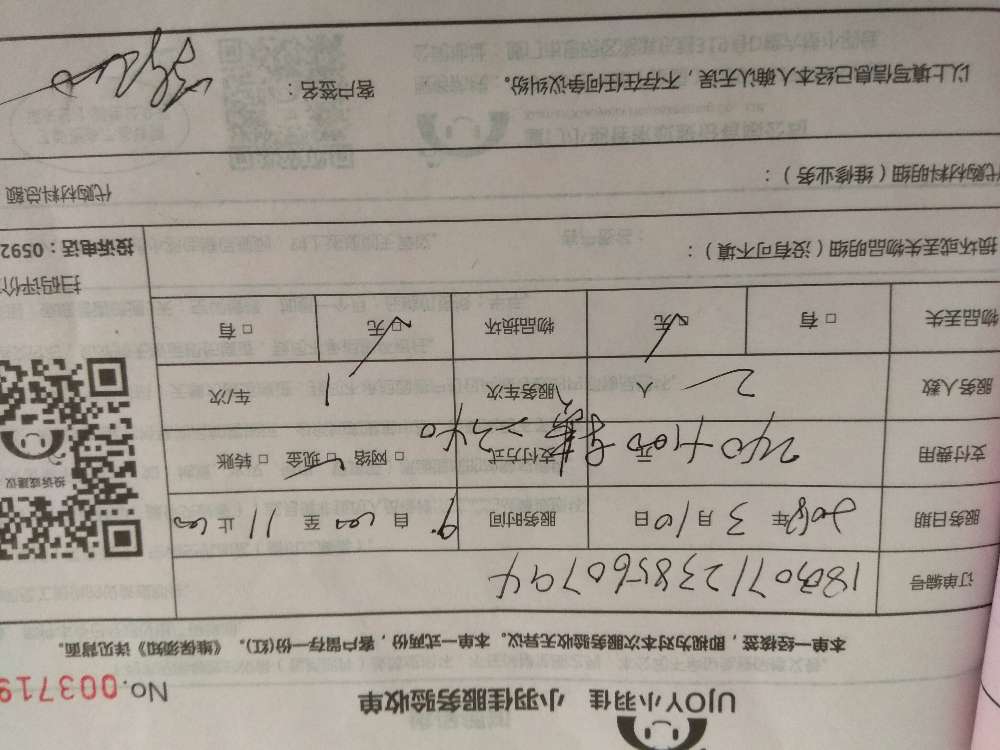 UJOY小羽佳 小羽佳服务验收单
No.003719
本单一经核签，即视为对本次服务验收无异议。本单一式两份，客户留存一份(红)。《维保须知》详见背面。
订单编号
服务日期 2018年3月10日 服务时间 9:00至11:00止
支付费用 240+100 元 支付方式 □网络 □现金 □转账
=340
服务人数 2人 服务车次 1 车/次
物品丢失 □有 □无 物品损坏 □无 □有
损坏或丢失物品明细（没有可不填）：
扫码评价
投诉电话：0592
投诉或建议
代购材料明细（维修业务）：
代购材料总额
以上填写信息已经本人确认无误，不存在任何争议纠纷。 客户签名：